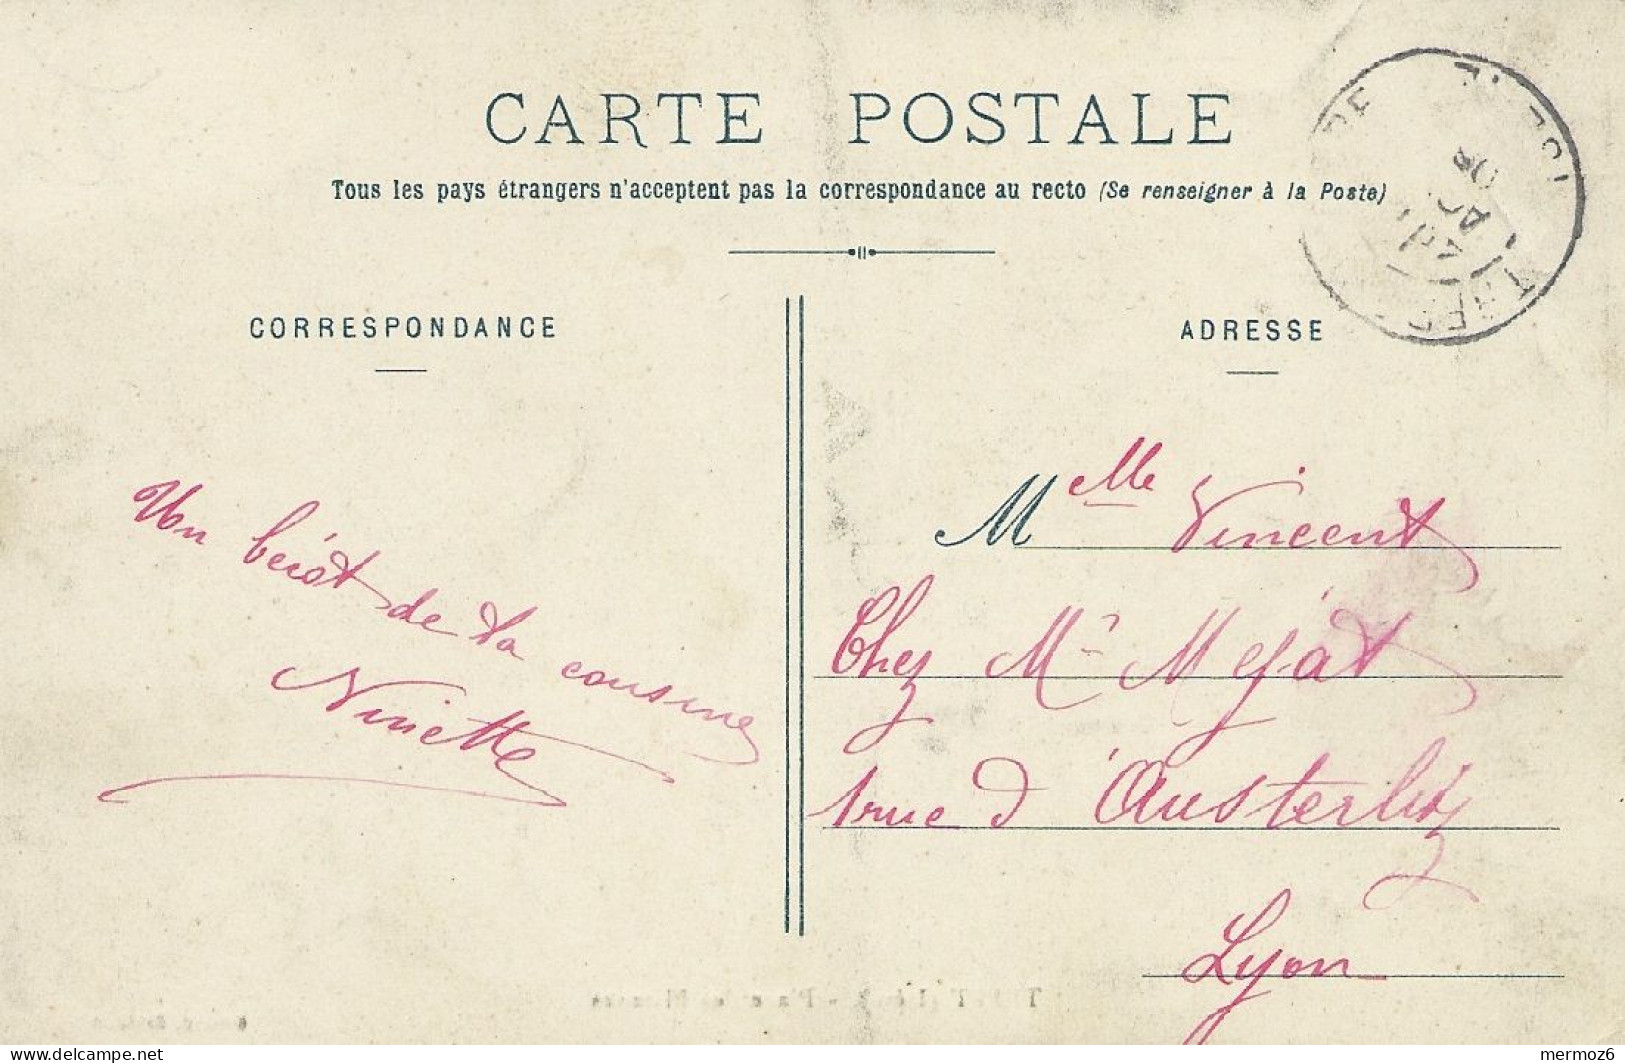 CARTE POSTALE
Tous les pays étrangers n'acceptent pas la correspondance au recto (Se renseigner à la Poste)
CORRESPONDANCE
ADRESSE
Un de ta cousine
Ninette
Melle Vincent
Chez Mr Mejat
1 rue d'Austerlitz
Lyon
mermoz6